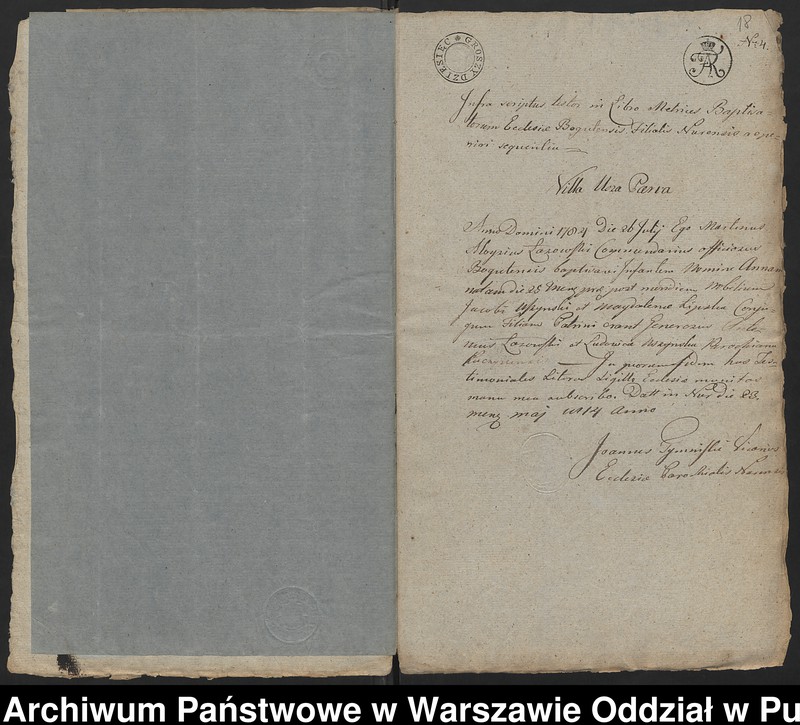 18
N: 4.
GROSZY DZIESIĘC
Infra scriptus testor in Libro Metrices Baptisa-
torum Ecclesiæ Bogutensis Filialis Nurensis repe-
riri sequentia
Villa Usza Parva
Anno Domini 1784 Die 26 Julij Ego Martinus
Aloysius Łazowski Commendarius
Bogutensis baptisavi Infantem Nomine Annam
natam die 25 post meridiem Nobilium
Jacobi Uszynski et Magdalena Lipska Conju-
gum Filiam Patrini erant Generosus
Łazowski et Ludovica Uszynska
In quorum fidem has Tes-
timoniales Literas Sigillo Ecclesiæ munitas
manu mea subscribo. Datt in Nur die 23
maj 1814 Anno
Joannes Tymiński Vicarius
Ecclesiæ Parochialis Nurensis
Archiwum Państwowe w Warszawie Oddział w Pu